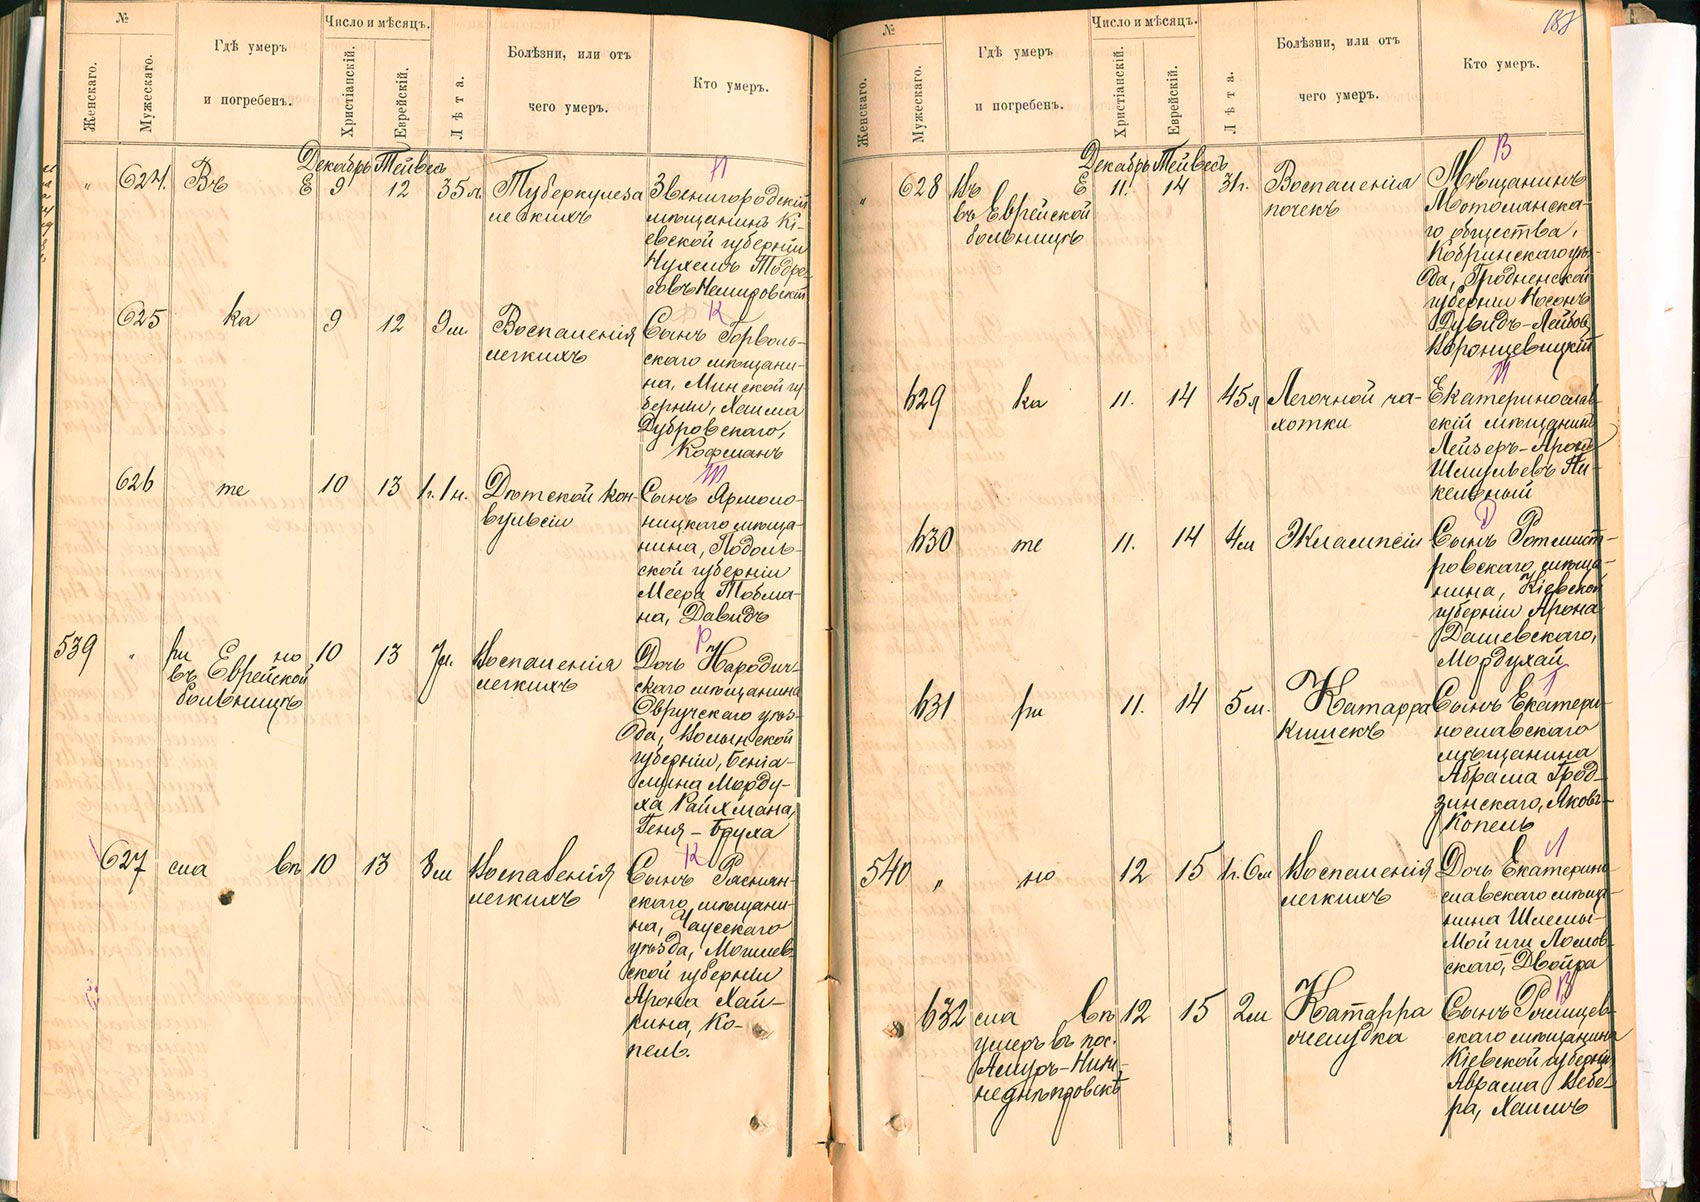 №
Женскаго.
Мужескаго.
Гдѣ умеръ
и погребенъ.
Число и мѣсяцъ.
Христіанскій.
Еврейскій.
Лѣта.
Болѣзни, или отъ
чего умеръ.
Кто умеръ.
Декабрь Тейвесъ
" 624. Въ Е 9 12 35 л. Туберкулеза
легкихъ
Звенигородскій
мѣщанинъ Кі-
евской губерніи
Нухемъ Тодре-
совъ Немировскій
625 ка 9 12 9 м Воспаленія
легкихъ
Сынъ Горволь-
скаго мѣщани-
на, Минской гу
берніи, Хаима
Дубровскаго,
Кофманъ
626 те 10 13 1 г. 1 м. Дѣтской кон-
вульсіи
Сынъ Ярмоло-
ницкаго мѣща-
нина, Подоль-
ской губерніи
Меера Тобма-
на, Давидъ
539 " ри но 10 13 7 м. Воспаленія
въ Еврейской
больницѣ
легкихъ
Дочь Народич-
скаго мѣщанина
Овручскаго уѣз-
да, Волынской
губерніи, Беніа-
мина Морду-
ха Райхмана,
Геня-Бруха
627 сла вѣ 10 13 8 м Воспаленія
легкихъ
Сынъ Расн
скаго мѣщани-
на, Чаусскаго
уѣзда, Могилев-
ской губерніи
Арона Хай-
кина, Ко-
пель.
188
№
Женскаго.
Мужескаго.
Гдѣ умеръ
и погребенъ.
Число и мѣсяцъ.
Христіанскій.
Еврейскій.
Лѣта.
Болѣзни, или отъ
чего умеръ.
Кто умеръ.
Декабрь Тейвесъ
" 628 Въ Е 11. 14 31 г. Воспаленія
въ Еврейской
больницѣ
почекъ
Мѣщанинъ
Мотолянска-
го общества,
Кобринскаго уѣ-
да, Гродненской
губерніи Носонъ
Дувидъ-Лейбовъ
Воронцевицкій
629 ка 11. 14 45 л Легочной ча-
хотки
Екатеринослав-
скій мѣщанинъ
Лейзеръ-Аронъ
Шмульевъ Ни-
кельный
630 те 11. 14 4 м Эклампсіи
Сынъ Ротмист-
ровскаго мѣща-
нина, Кіевской
губерніи Арона
Дашевскаго,
Мордухай
631 ри 11. 14 5 м. Катарра
кишекъ
Сынъ Екатери-
нославскаго
мѣщанина
Абрама Грод-
зинскаго, Яковъ-
Копель
540 " но 12 15 1 г. 6 м Воспаленія
легкихъ
Дочь Екатерино-
славскаго мѣща-
нина Шлемы-
Мойши Ломов-
скаго, Двойра
632 сла вѣ 12 15 2 м Катарра
умеръ въ пос.
Амуръ-Ниж-
неднѣпровскѣ
желудка
Сынъ
скаго мѣщанина
Кіевской губерніи
Аврама Вебе-
ра, Хаимъ